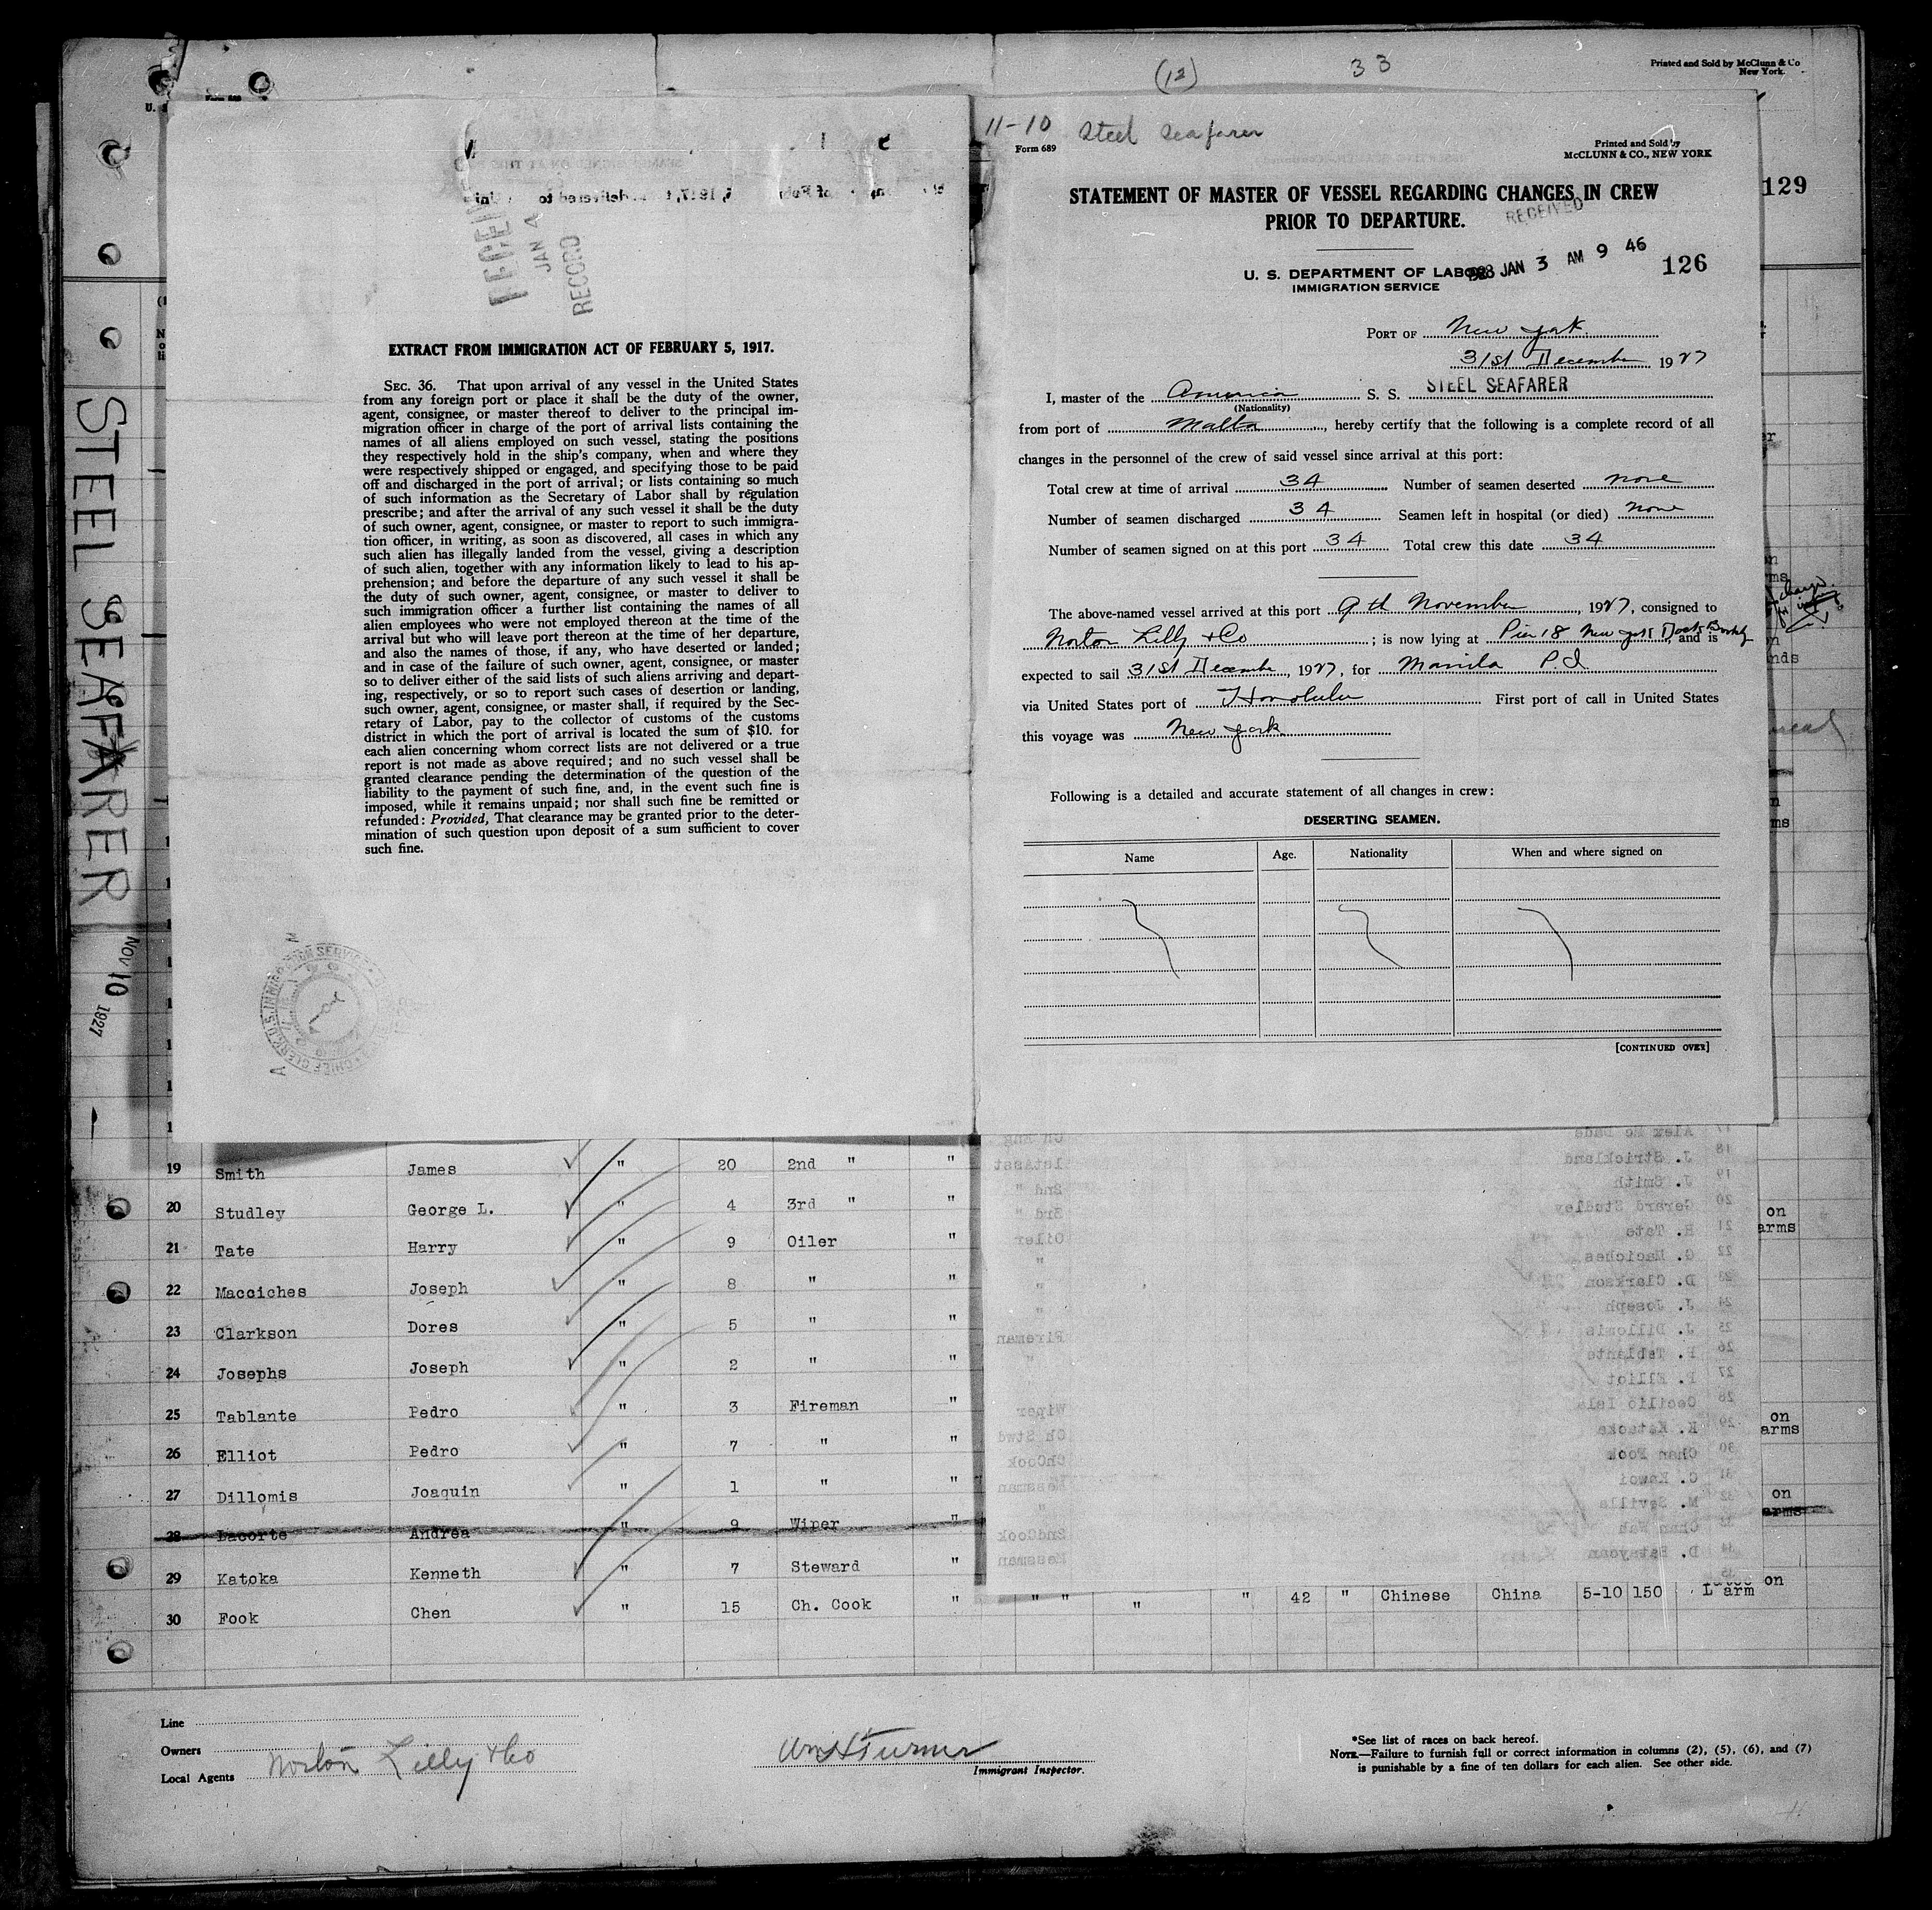 (12) 33
Printed and Sold by McClunn & Co
New York.
U. S.
Form 689
129
STEEL SEAFARER
NOV 10 1927
RECEIVED
JAN 4
RECORD
EXTRACT FROM IMMIGRATION ACT OF FEBRUARY 5, 1917.
SEC. 36. That upon arrival of any vessel in the United States
from any foreign port or place it shall be the duty of the owner,
agent, consignee, or master thereof to deliver to the principal im-
migration officer in charge of the port of arrival lists containing the
names of all aliens employed on such vessel, stating the positions
they respectively hold in the ship's company, when and where they
were respectively shipped or engaged, and specifying those to be paid
off and discharged in the port of arrival; or lists containing so much
of such information as the Secretary of Labor shall by regulation
prescribe; and after the arrival of any such vessel it shall be the duty
of such owner, agent, consignee, or master to report to such immigra-
tion officer, in writing, as soon as discovered, all cases in which any
such alien has illegally landed from the vessel, giving a description
of such alien, together with any information likely to lead to his ap-
prehension; and before the departure of any such vessel it shall be
the duty of such owner, agent, consignee, or master to deliver to
such immigration officer a further list containing the names of all
alien employees who were not employed thereon at the time of the
arrival but who will leave port thereon at the time of her departure,
and also the names of those, if any, who have deserted or landed;
and in case of the failure of such owner, agent, consignee, or master
so to deliver either of the said lists of such aliens arriving and depart-
ing, respectively, or so to report such cases of desertion or landing,
such owner, agent, consignee, or master shall, if required by the Sec-
retary of Labor, pay to the collector of customs of the customs
district in which the port of arrival is located the sum of $10. for
each alien concerning whom correct lists are not delivered or a true
report is not made as above required; and no such vessel shall be
granted clearance pending the determination of the question of the
liability to the payment of such fine, and, in the event such fine is
imposed, while it remains unpaid; nor shall such fine be remitted or
refunded: Provided, That clearance may be granted prior to the deter-
mination of such question upon deposit of a sum sufficient to cover
such fine.
11-10 Steel Seafarer
Form 689
Printed and Sold by
McCLUNN & CO., NEW YORK
STATEMENT OF MASTER OF VESSEL REGARDING CHANGES IN CREW
PRIOR TO DEPARTURE.
RECEIVED
1928 JAN 3 AM 9 46
U. S. DEPARTMENT OF LABOR
IMMIGRATION SERVICE
126
PORT OF New York
31st December 1927
I, master of the America S. S. STEEL SEAFARER
(Nationality)
from port of Malta, hereby certify that the following is a complete record of all
changes in the personnel of the crew of said vessel since arrival at this port:
Total crew at time of arrival 34 Number of seamen deserted none
Number of seamen discharged 34 Seamen left in hospital (or died) none
Number of seamen signed on at this port 34 Total crew this date 34
The above-named vessel arrived at this port 9th November, 1927, consigned to
Norton Lilly & Co; is now lying at Pier 18 New York Dock Bookly, and is
expected to sail 31st Decembe, 1927, for Manila P.I
via United States port of Honolulu First port of call in United States
this voyage was New York
Following is a detailed and accurate statement of all changes in crew:
DESERTING SEAMEN.
Name Age. Nationality When and where signed on
[CONTINUED OVER]
19 Smith James " 20 2nd " "
20 Studley George L. " 4 3rd " " on arms
21 Tate Harry " 9 Oiler "
22 Macciches Joseph " 8 " "
23 Clarkson Dores " 5 " "
24 Josephs Joseph " 2 " "
25 Tablante Pedro " 3 Fireman " on arms
26 Elliot Pedro " 7 " "
27 Dillomis Joaquin " 1 " " on
28 Lacorte Andrea " 9 Wiper " arms
29 Katoka Kenneth " 7 Steward " on
30 Fook Chen " 15 Ch. Cook " " " " " 42 " Chinese China 5-10 150 L arm
Line
Owners
Local Agents Norton Lilly & Co
Wm H Turner
Immigrant Inspector.
*See list of races on back hereof.
NOTE.—Failure to furnish full or correct information in columns (2), (5), (6), and (7)
is punishable by a fine of ten dollars for each alien. See other side.